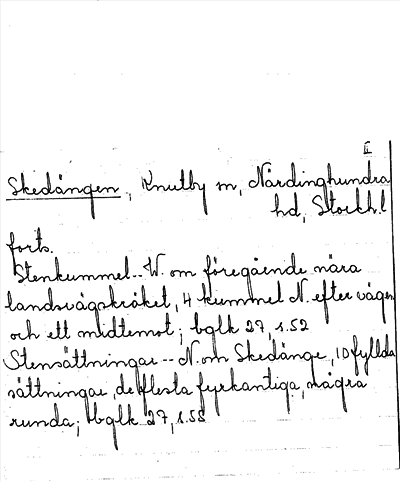 II
Skedängen, Knutby sn, Närdinghundra
hd, Stockh. l
forts.
Stenkummel -- W. om föregående nära
landsvägskröket, 4 kummel N. efter vägen
och ett midtemot; bglk 27, s. 52
Stensättningar -- N. om Skedänge, 10 fyllda
sättningar, de flesta fyrkantiga, några
runda; bglk 27, s. 53